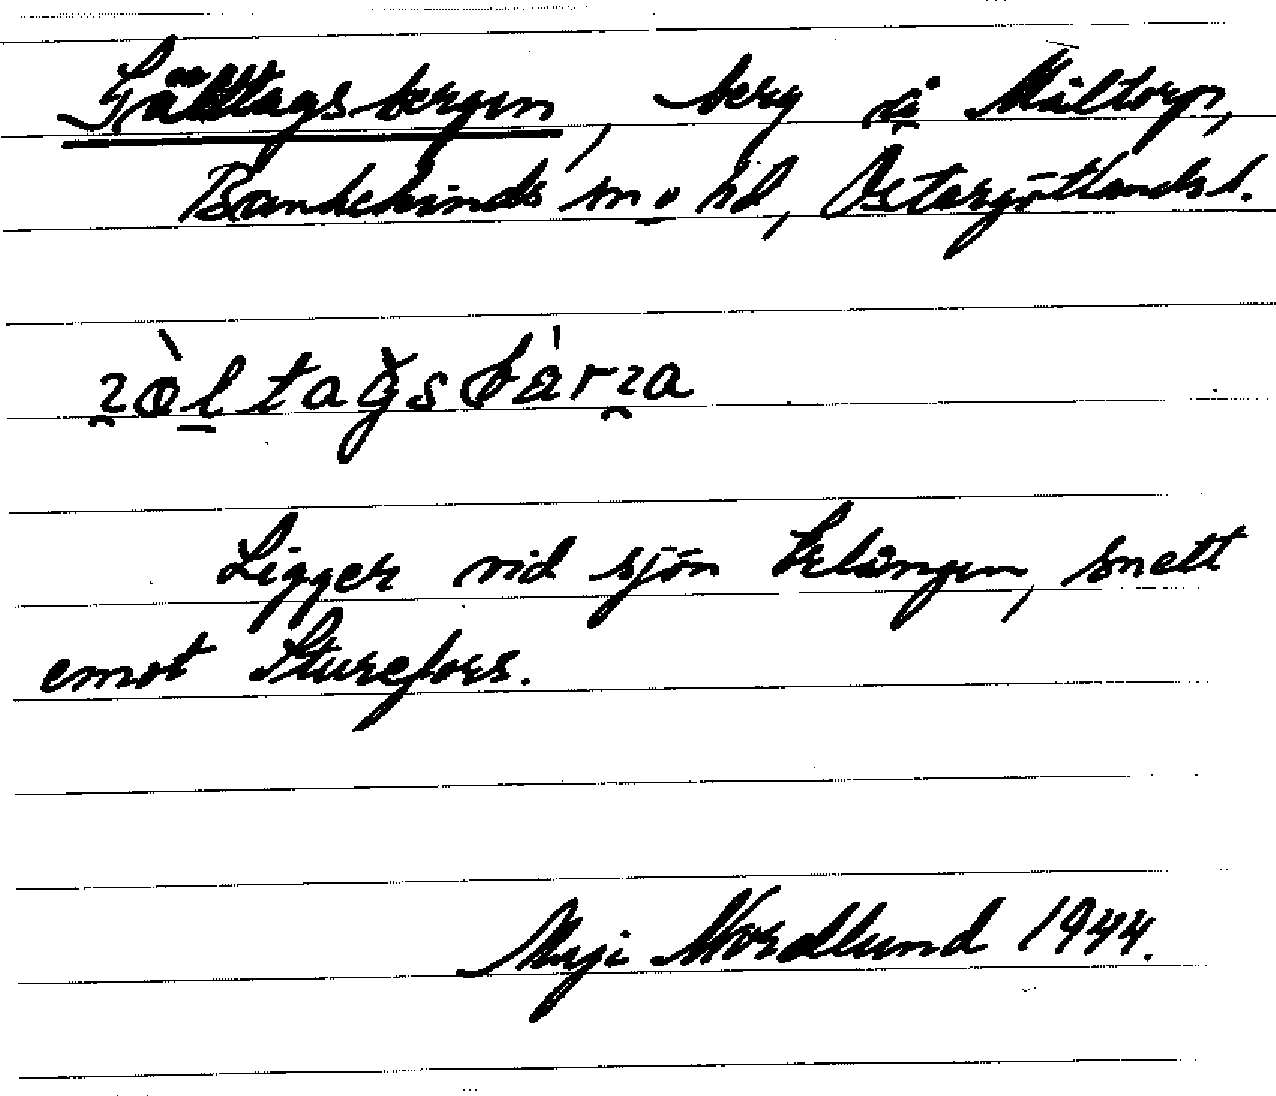 Gälltagsbergen, berg å Måltorp,
Bankekinds sn o hd, Östergötlands l.
Ligger vid sjön Erlången, snett
emot Sturefors.
Maji Nordlund 1944.